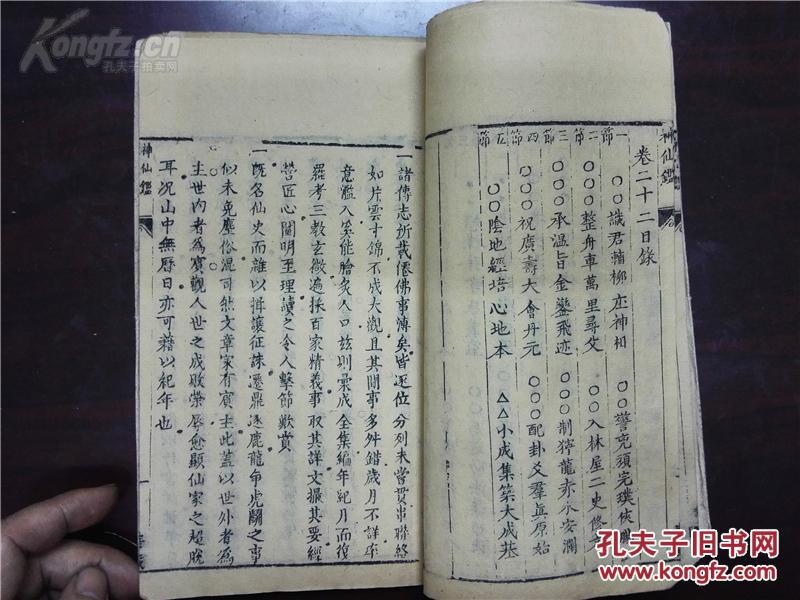 神仙鑑
卷二十二目錄
一節
○○識君輔柳庄神相
二節
○○○整舟車萬里尋父
○○入林屋二史修
三節
○○○承溫旨金鑾飛迹
○○○制獰龍赤水安瀾
四節
○○○祝廣壽大會丹元
○○○配卦爻羣真原始
五節
○○陰地經培心地本
△△小成集築大成基
一諸傳志所載僊佛事傳矣皆逐位分列未嘗貫串聯絡
如片雲寸錦不成大觀且其間事多舛錯歲月不詳率
意濫入奚能膾炙人口玆則彙成全集編年紀月而復
羅考三教玄微遍採百家精義事取其詳文撮其要經
營匠心闡明至理讀之令人擊節歎賞
一既名仙史而雜以揖讓征誅遷鼎逐鹿龍爭虎鬭之事
似未免塵俗混可然文章家有賓主此蓋以世外者為
主世內者為賓觀人世之成敗榮辱愈顯仙家之超脫
耳況山中無曆日亦可藉以紀年也
神仙鑑
Kongfz.cn
孔夫子拍卖网
孔夫子旧书网
www.kongfz.com